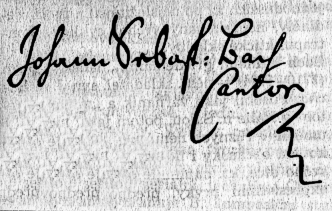 Johann Sebast: Bach
Cantor